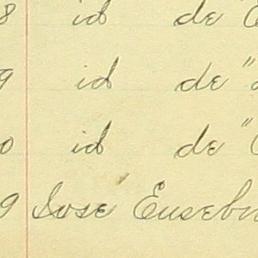 8 id de "
9 id de "
0 id de "
9 José Euseb